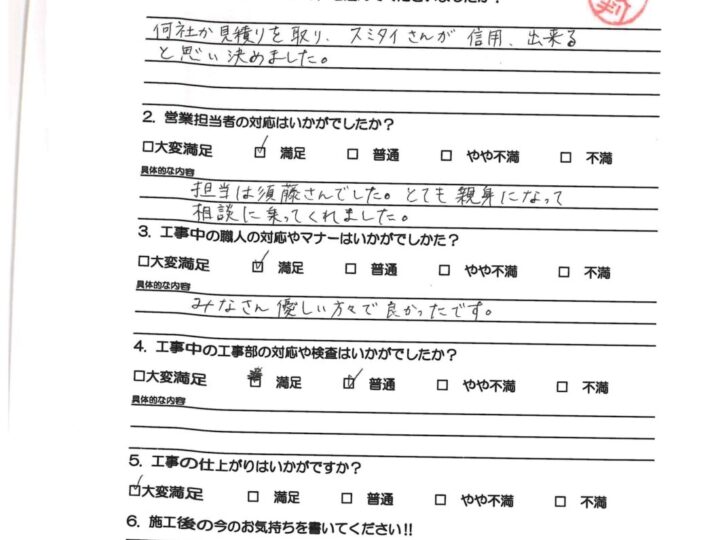 くださいましたか?
何社か見積りを取り、スミタイさんが信用、出来る
と思い決めました。
2. 営業担当者の対応はいかがでしたか?
☐大変満足 ☑ 満足 ☐ 普通 ☐ やや不満 ☐ 不満
具体的な内容
担当は須藤さんでした。とても親身になって
相談に乗ってくれました。
3. 工事中の職人の対応やマナーはいかがでしかた?
☐大変満足 ☑ 満足 ☐ 普通 ☐ やや不満 ☐ 不満
具体的な内容
みなさん優しい方々で良かったです。
4. 工事中の工事部の対応や検査はいかがでしたか?
☐大変満足 ☐ 満足 ☑ 普通 ☐ やや不満 ☐ 不満
具体的な内容
5. 工事の仕上がりはいかがですか?
☑大変満足 ☐ 満足 ☐ 普通 ☐ やや不満 ☐ 不満
6. 施工後の今のお気持ちを書いてください!!